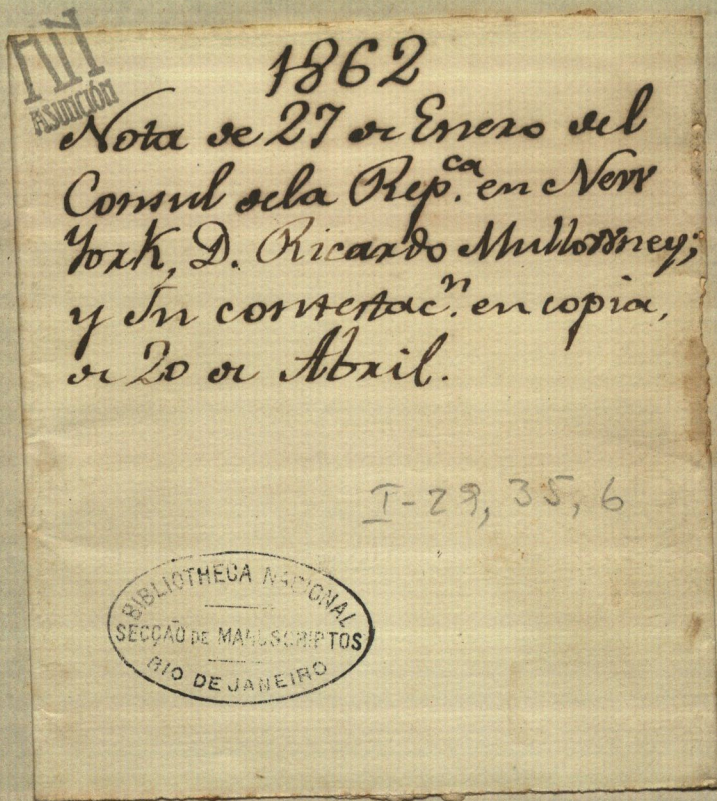 AN
ASUNCIÓN
1862
Nota de 27 de Enero del
Consul dela Rep.ca en New
York, D. Ricardo Mullowney;
y Su contestac.n en copia,
de 20 de Abril.
I-29, 35, 6
BIBLIOTHECA NACIONAL
SECÇÃO DE MANUSCRIPTOS
RIO DE JANEIRO